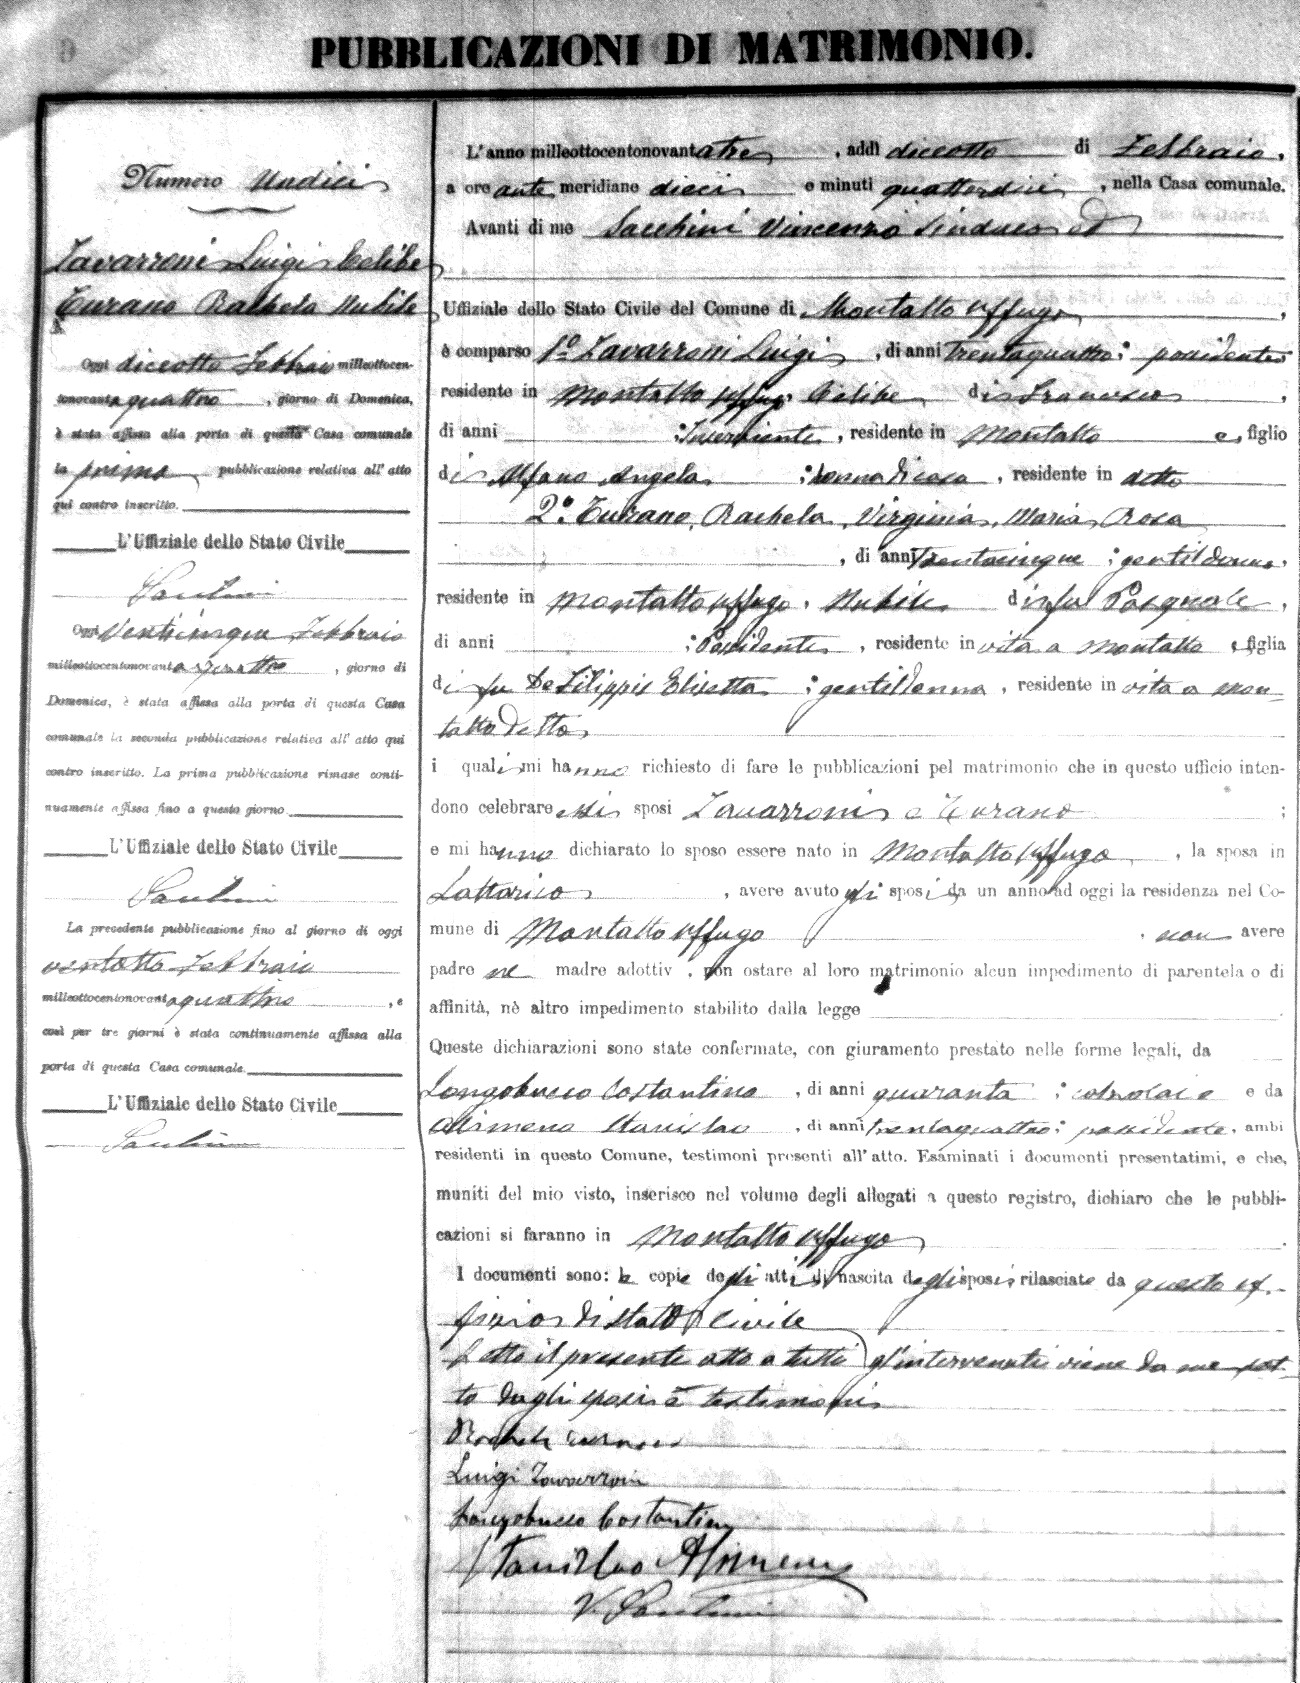 PUBBLICAZIONI DI MATRIMONIO.
Numero Undici
Zavarroni Luigi Celibe
Turano Rachela Nubile
Oggi diciotto Febbraio milleottocen-
tonovantaquattro, giorno di Domenica,
è stata affissa alla porta di questa Casa comunale
la prima pubblicazione relativa all' atto
qui contro inscritto.
L'Uffiziale dello Stato Civile
Oggi Venticinque Febbraio
milleottocentonovantaquattro, giorno di
Domenica, è stata affissa alla porta di questa Casa
comunale la seconda pubblicazione relativa all' atto qui
contro inscritto. La prima pubblicazione rimase conti-
nuamente affissa fino a questo giorno
L'Uffiziale dello Stato Civile
La precedente pubblicazione fino al giorno di oggi
ventotto Febbraio
milleottocentonovantaquattro, e
così per tre giorni è stata continuamente affissa alla
porta di questa Casa comunale.
L'Uffiziale dello Stato Civile
L'anno milleottocentonovantatre, addì diciotto di Febbraio,
a ore ante meridiane dieci e minuti quattordici, nella Casa comunale.
Avanti di me Sacchini Vincenzo Sindaco ed
Uffiziale dello Stato Civile del Comune di Montalto Uffugo,
è comparso 1º Zavarroni Luigi, di anni trentaquattro; possidente
residente in Montalto Uffugo, Celibe di Francesco,
di anni ; Inserviente, residente in Montalto e, figlio
di Alfano Angela ; donna di casa, residente in detto
2º. Turano, Rachela, Virginia, Maria Rosa
, di anni trentacinque ; gentildonna.
residente in Montalto Uffugo, Nubile di fu Pasquale,
di anni ; Possidente, residente in vita a Montalto e, figlia
di fu De Filippis Elisetta ; gentildonna, residente in vita a Mon-
talto detto
i quali mi hanno richiesto di fare le pubblicazioni pel matrimonio che in questo ufficio inten-
dono celebrare essi sposi Zavarroni e Turano ;
e mi hanno dichiarato lo sposo essere nato in Montalto Uffugo, la sposa in
Lattarico, avere avuto gli sposi da un anno ad oggi la residenza nel Co-
mune di Montalto Uffugo, non avere
padre ne madre adottiv , non ostare al loro matrimonio alcun impedimento di parentela o di
affinità, nè altro impedimento stabilito dalla legge
Queste dichiarazioni sono state confermate, con giuramento prestato nelle forme legali, da
Longobucco Costantino, di anni quaranta ; e da
Alimena Stanislao, di anni trentaquattro; possidente, ambi
residenti in questo Comune, testimoni presenti all' atto. Esaminati i documenti presentatimi, e che,
muniti del mio visto, inserisco nel volume degli allegati a questo registro, dichiaro che le pubbli-
cazioni si faranno in Montalto Uffugo
I documenti sono: le copie degli atti di nascita degli sposi rilasciate da questo uf-
fizio di stato civile
Letto il presente atto a tutti gl'intervenuti viene da me
dagli sposi e testimoni
Luigi Zavarroni
Longobucco Costantino
Stanislao Alimena